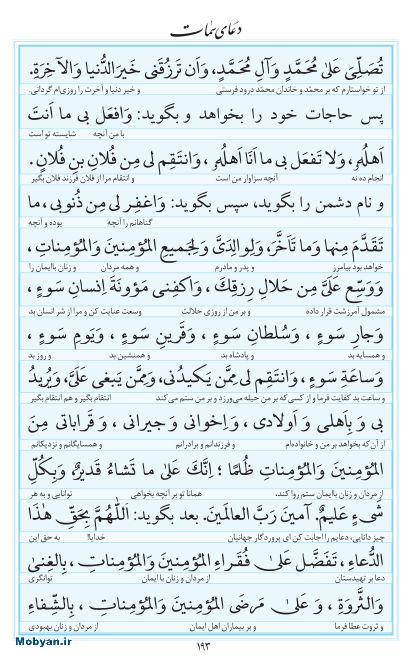 دعای سمات
تُصَلِّیَ عَلیٰ مُحَمَّدٍ وَآلِ مُحَمَّدٍ، وَاَن تَرزُقَنی خَیرَالدُّنیا وَالآخِرَةِ.
از تو خواستارم که بر محمّد و خاندان محمّد درود فرستی و خیر دنیا و آخرت را روزی‌ام گردانی.
پس حاجات خود را بخواهد و بگوید: وَافعَل بی ما اَنتَ
با من آنچه شایسته تو است
اَهلُهُ، وَلا تَفعَل بی ما اَنَا اَهلُهُ، وَانتَقِم لی مِن فُلانِ بنِ فُلانٍ.
انجام ده نه آنچه سزاوار من است و انتقام مرا از فلان فرزند فلان بگیر
و نام دشمن را بگوید، سپس بگوید: وَاغفِر لی مِن ذُنوبی، ما
گناهانم را آنچه بوده و آنچه
تَقَدَّمَ مِنها وَما تَاَخَّرَ، وَلِوالِدَیَّ وَلِجَمیعِ المُؤمِنینَ وَالمُؤمِناتِ،
خواهد بود بیامرز و پدر و مادرم و همه مردان و زنان باایمان را
وَوَسِّع عَلَیَّ مِن حَلالِ رِزقِکَ، وَاکفِنی مَؤونَةَ اِنسانِ سَوءٍ،
مشمول آمرزشت قرار داده و بر من از روزی حلالت وسعت عنایت کن و مرا از شر انسان بد
وَجارِ سَوءٍ، وَسُلطانِ سَوءٍ، وَقَرینِ سَوءٍ، وَیَومِ سَوءٍ،
و همسایه بد و پادشاه بد و همنشین بد و روز بد
وَساعَةِ سَوءٍ، وَانتَقِم لی مِمَّن یَکیدُنی، وَمِمَّن یَبغی عَلَیَّ، وَیُریدُ
و ساعت بد کفایت فرما و از کسی که بر من حیله می‌ورزد و بر من ستم می‌کند انتقام بگیر و هم انتقام بگیر
بی وَ بِاَهلی وَ اَولادی، وَ اِخوانی وَ جیرانی، وَ قَراباتی مِنَ
از آن‌که بخواهد بر من و خانواده‌ام و فرزندانم و برادرانم و همسایگانم و نزدیکانم
المُؤمِنینَ وَالمُؤمِناتِ ظُلمًا؛ اِنَّکَ عَلیٰ ما تَشاءُ قَدیرٌ وَبِکُلِّ
از مردان و زنان باایمان ستم روا کند. همانا تو بر آنچه بخواهی توانایی و به هر
شَیءٍ عَلیمٌ. آمینَ رَبَّ العالَمینَ. بعد بگوید: اَللّٰهُمَّ بِحَقِّ هٰذَا
چیز دانایی، دعایم را اجابت کن ای پروردگار جهانیان خدایا! به حق این
الدُّعاءِ، تَفَضَّل عَلیٰ فُقَراءِ المُؤمِنینَ وَالمُؤمِناتِ، بِالغِنیٰ
دعا بر تهیدستان از مردان و زنان با ایمان توانگری
وَالثَّروَةِ، وَ عَلیٰ مَرضَی المُؤمِنینَ وَالمُؤمِناتِ، بِالشِّفاءِ
و ثروت عطا فرما و بر بیماران اهل ایمان از مردان و زنان بهبودی
۱۹۳
Mobyan.ir